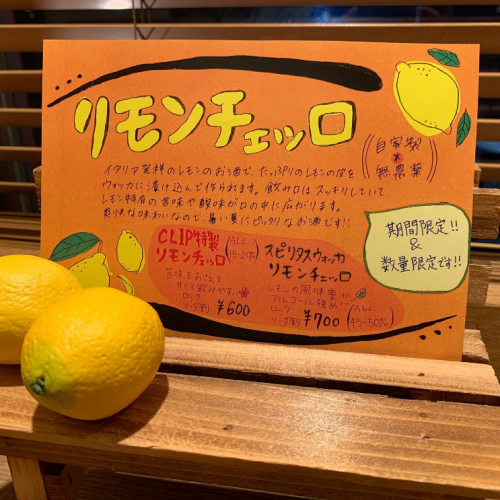 リモンチェッロ
自家製
×
無農薬
イタリア発祥のレモンのお酒で、たっぷりのレモンの皮を
ウォッカに漬け込んで作られます。飲み口はスッキリしていて、
レモン特有の苦味や酸味が口の中に広がります。
爽快な味わいなので、暑い夏にピッタリなお酒です!!
期間限定!!
&
数量限定です!!
CLIP特製
リモンチェッロ
(ALC
15~20%)
苦味をおさえて
すごく飲みやすい
ロック
ソーダ割 ¥600
スピリタスウォッカ
リモンチェッロ
レモンの風味豊か
アルコール強め!!
ロック
ソーダ割 ¥700
(ALC
45~50%)